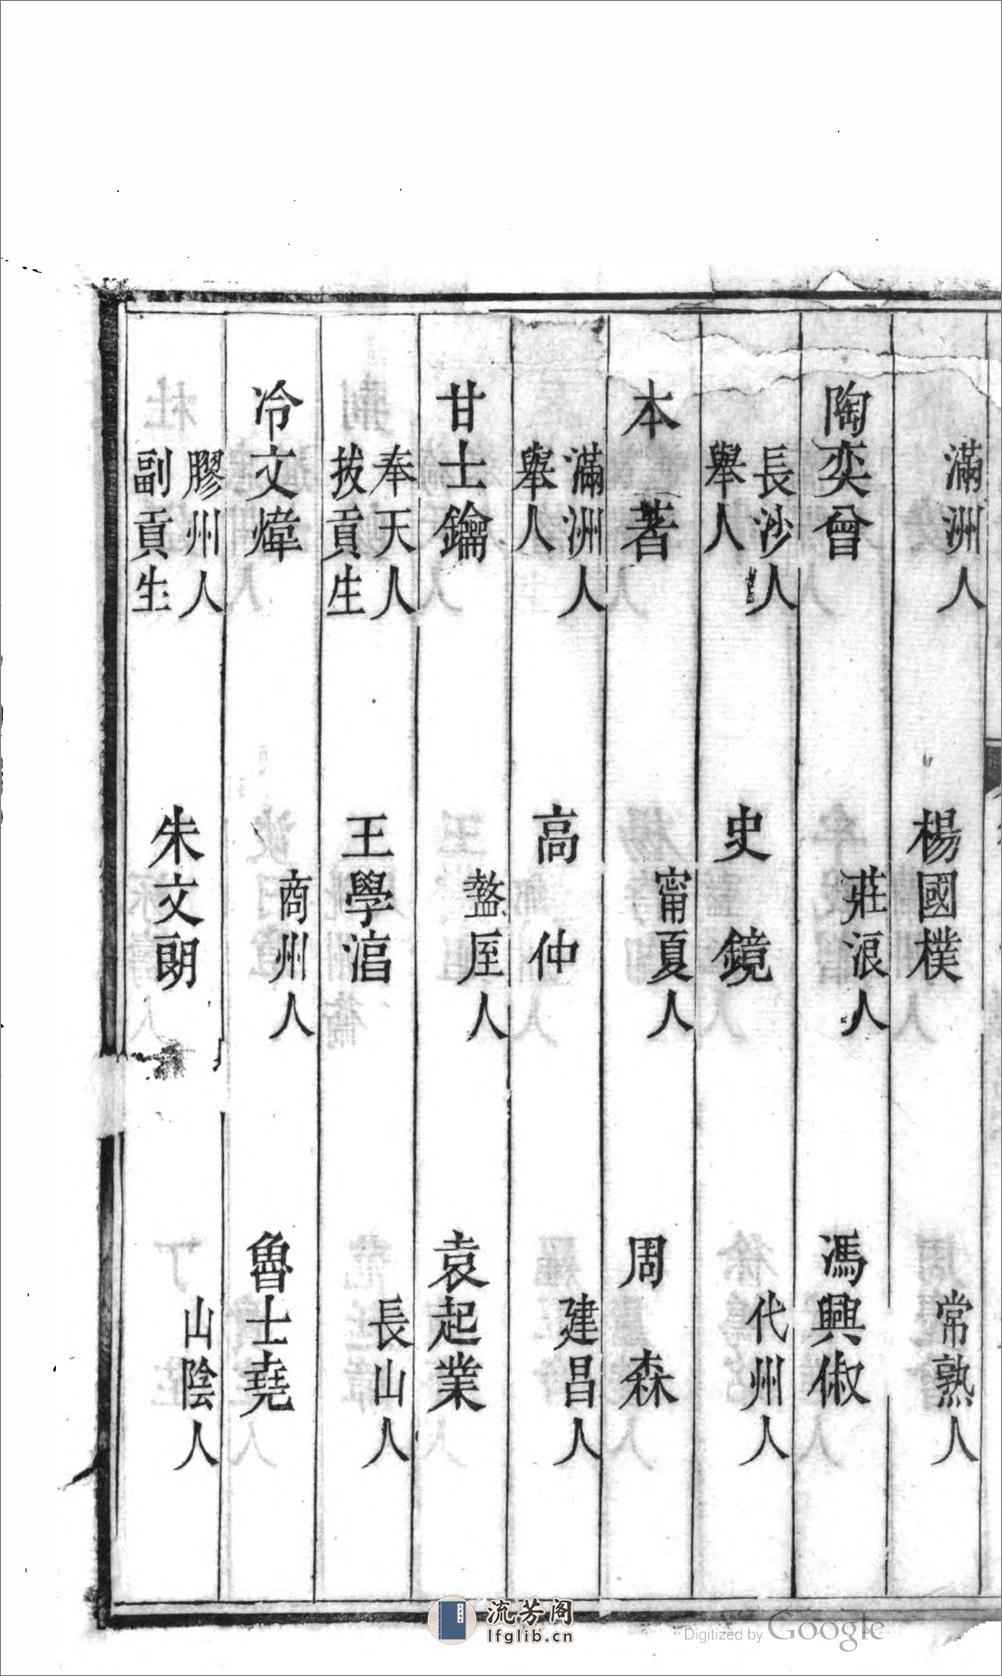 滿洲人 楊國樸 常熟人
陶奕曾 莊浪人 馮興俶
長沙人
舉人
史鏡 代州人
本著 甯夏人 周森
滿洲人
舉人
高仲 建昌人
甘士鑰 盩厔人 袁起業
奉天人
拔貢生
王學 長山人
冷文煒 商州人 魯士堯
膠州人
副貢生
朱文朗 山陰人
流芳阁
lfglib.cn
Digitized by Google